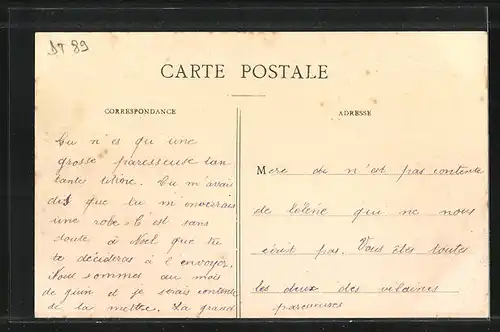 DT 89
CARTE POSTALE
CORRESPONDANCE
ADRESSE
Tu n'es qu une
grosse paresseuse tan
tante titine. Tu m'avais
dit que tu m'enverrais
une robe. C'est sans
doute à Noël que tu
te décideras à l'envoyer.
Nous sommes au mois
de juin et je serais contente
de la mettre. La grand
Mere du n'est pas contente
de hélène qui ne nous
écrit pas. Vous êtes toutes
les deux des vilaines
paresseuses